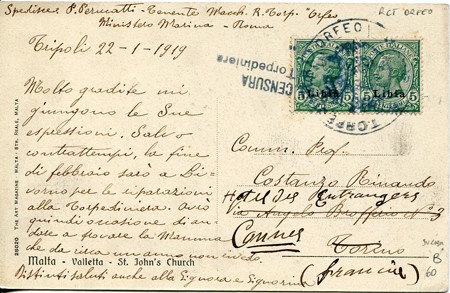 Spedisce P. Perucatti - Tenente Macch. R. Torp. "Orfeo
Ministero Marina - Roma
RCT ORFEO
Tripoli 22-1-1919
Molto gradite mi
giungono le Sue
espressioni. Salvo
contrattempi, la fine
di febbraio sarò a Li-
vorno per le riparazioni
alla Torpediniera. Avrò
quindi occasione di an-
dare a trovare la Mamma
che da circa un anno non vedo.
Distinti saluti anche alla Signora e Signorina
CENSURA
Torpediniere
ORFEO
TORPE
POSTE ITALIANE
Libia
5 CENTESIMI 5
POSTE ITALIANE
Libia
5 CENTESIMI 5
Comm. Prof.
Costanzo Rinaudo
Hotel des Etrangers
Via Angelo Brofferio N. 3
Cannes
Torino
(francia)
B
60
26020 THE ART MAGAZINE MALTA - STR. REALE, MALTA
Malta - Valletta - St. John's Church